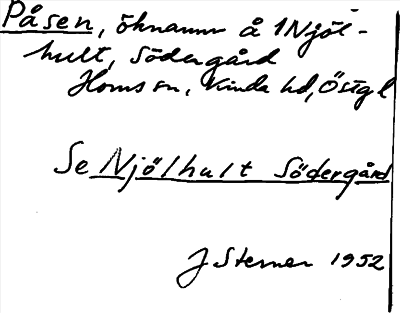 Påsen, öknamn å 1 Njöl-
hult, Södergård
Horns sn, Kinda hd, Östgl
Se Njölhult Södergård
J Sterner 1952